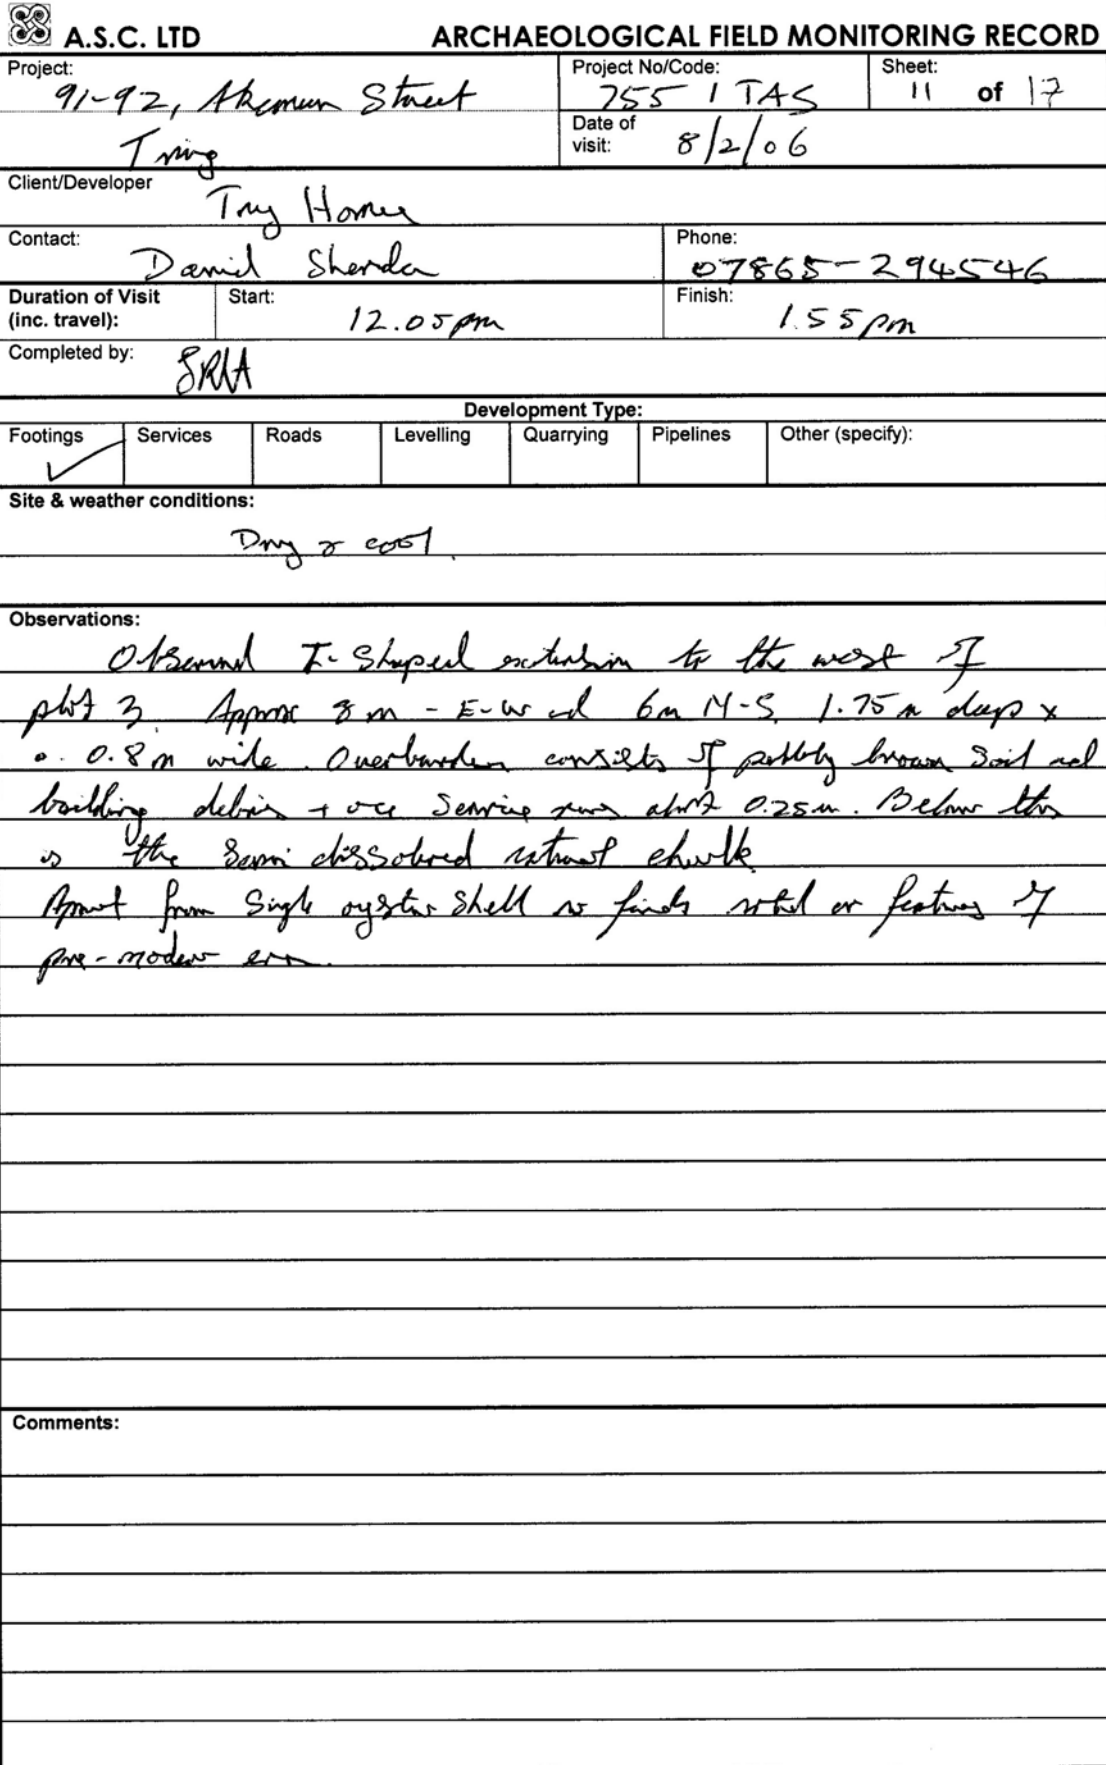 A.S.C. LTD ARCHAEOLOGICAL FIELD MONITORING RECORD
Project: 91-92, Akeman Street
Tring
Project No/Code: 755 / TAS
Sheet: 11 of 17
Date of visit: 8/2/06
Client/Developer Try Homes
Contact: David
Phone: 07865-294546
Duration of Visit (inc. travel):
Start: 12.05pm
Finish: 1.55pm
Completed by:
Development Type:
Footings ✓ Services Roads Levelling Quarrying Pipelines Other (specify):
Site & weather conditions:
Dry & cool.
Observations:
Observed -Shaped extension to the west of
plot 3. Approx 8m - E-W and 6m N-S. 1.75m deep x
0.8m wide. Overburden consists of pebbly brown soil and
building debris + service runs about 0.25m. Below this
is the semi dissolved natural chalk
Apart from single oyster shell no finds noted or features of
pre-modern era.
Comments: